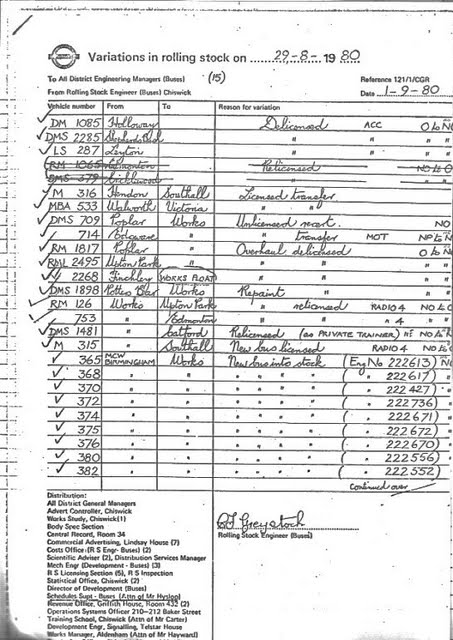 Variations in rolling stock on 29-8-1980
To All District Engineering Managers (Buses) (15) Reference 121/1/CGR
From Rolling Stock Engineer (Buses) Chiswick Date 1-9-80
Vehicle number From To Reason for variation
DM 1085 Holloway Delicensed ACC O to N
DMS 2285 Shepherds Bush " " "
LS 287 Leyton " " "
RM 1065 Edmonton Relicensed N to O
DMS 379 Cricklewood " "
M 316 Hendon Southall Licensed transfer
MBA 533 Walworth Victoria " "
DMS 709 Poplar Works Unlicensed recert. NO
" 714 Edgware " " Transfer MOT NP to N
RM 1817 Poplar " Overhaul delicensed O to N
RML 2495 Upton Park " " "
" 2268 Finchley WORKS FLOAT " "
DMS 1898 Potters Bar Works Repaint "
RM 126 Works Upton Park " relicensed RADIO 4 NO to O
" 753 " Edmonton " " " 4
DMS 1481 " Catford Relicensed (as PRIVATE TRAINER)
M 315 " Southall New bus licensed RADIO 4 NO to
" 365 MCW BIRMINGHAM Works New bus into stock (Eng No 222613)
" 368 " " " " " " ( " " 222617)
" 370 " " " " " " ( " " 222427)
" 372 " " " " " " ( " " 222736)
" 374 " " " " " " ( " " 222671)
" 375 " " " " " " ( " " 222672)
" 376 " " " " " " ( " " 222670)
" 380 " " " " " " ( " " 222556)
" 382 " " " " " " ( " " 222552)
Continued over
Distribution:
All District General Managers
Advert Controller, Chiswick
Works Study, Chiswick(1)
Body Spec Section
Central Record, Room 34
Commercial Advertising, Lindsay House (7)
Costs Office (R S Engr- Buses) (2)
Scientific Adviser (2), Distribution Services Manager
Mech Engr (Development - Buses) (3)
R S Licensing Section (5), R S Inspection
Statistical Office, Chiswick (2)
Director of Development (Buses)
Schedules Supt - Buses (Attn of Mr Hyslop)
Revenue Office, Griffith House, Room 432 (2)
Operations Systems Officer 210-212 Baker Street
Training School, Chiswick (Attn of Mr Carter)
Development Engr, Signalling, Telstar House
Works Manager, Aldenham (Attn of Mr Hayward)
Greystoch
Rolling Stock Engineer (Buses)